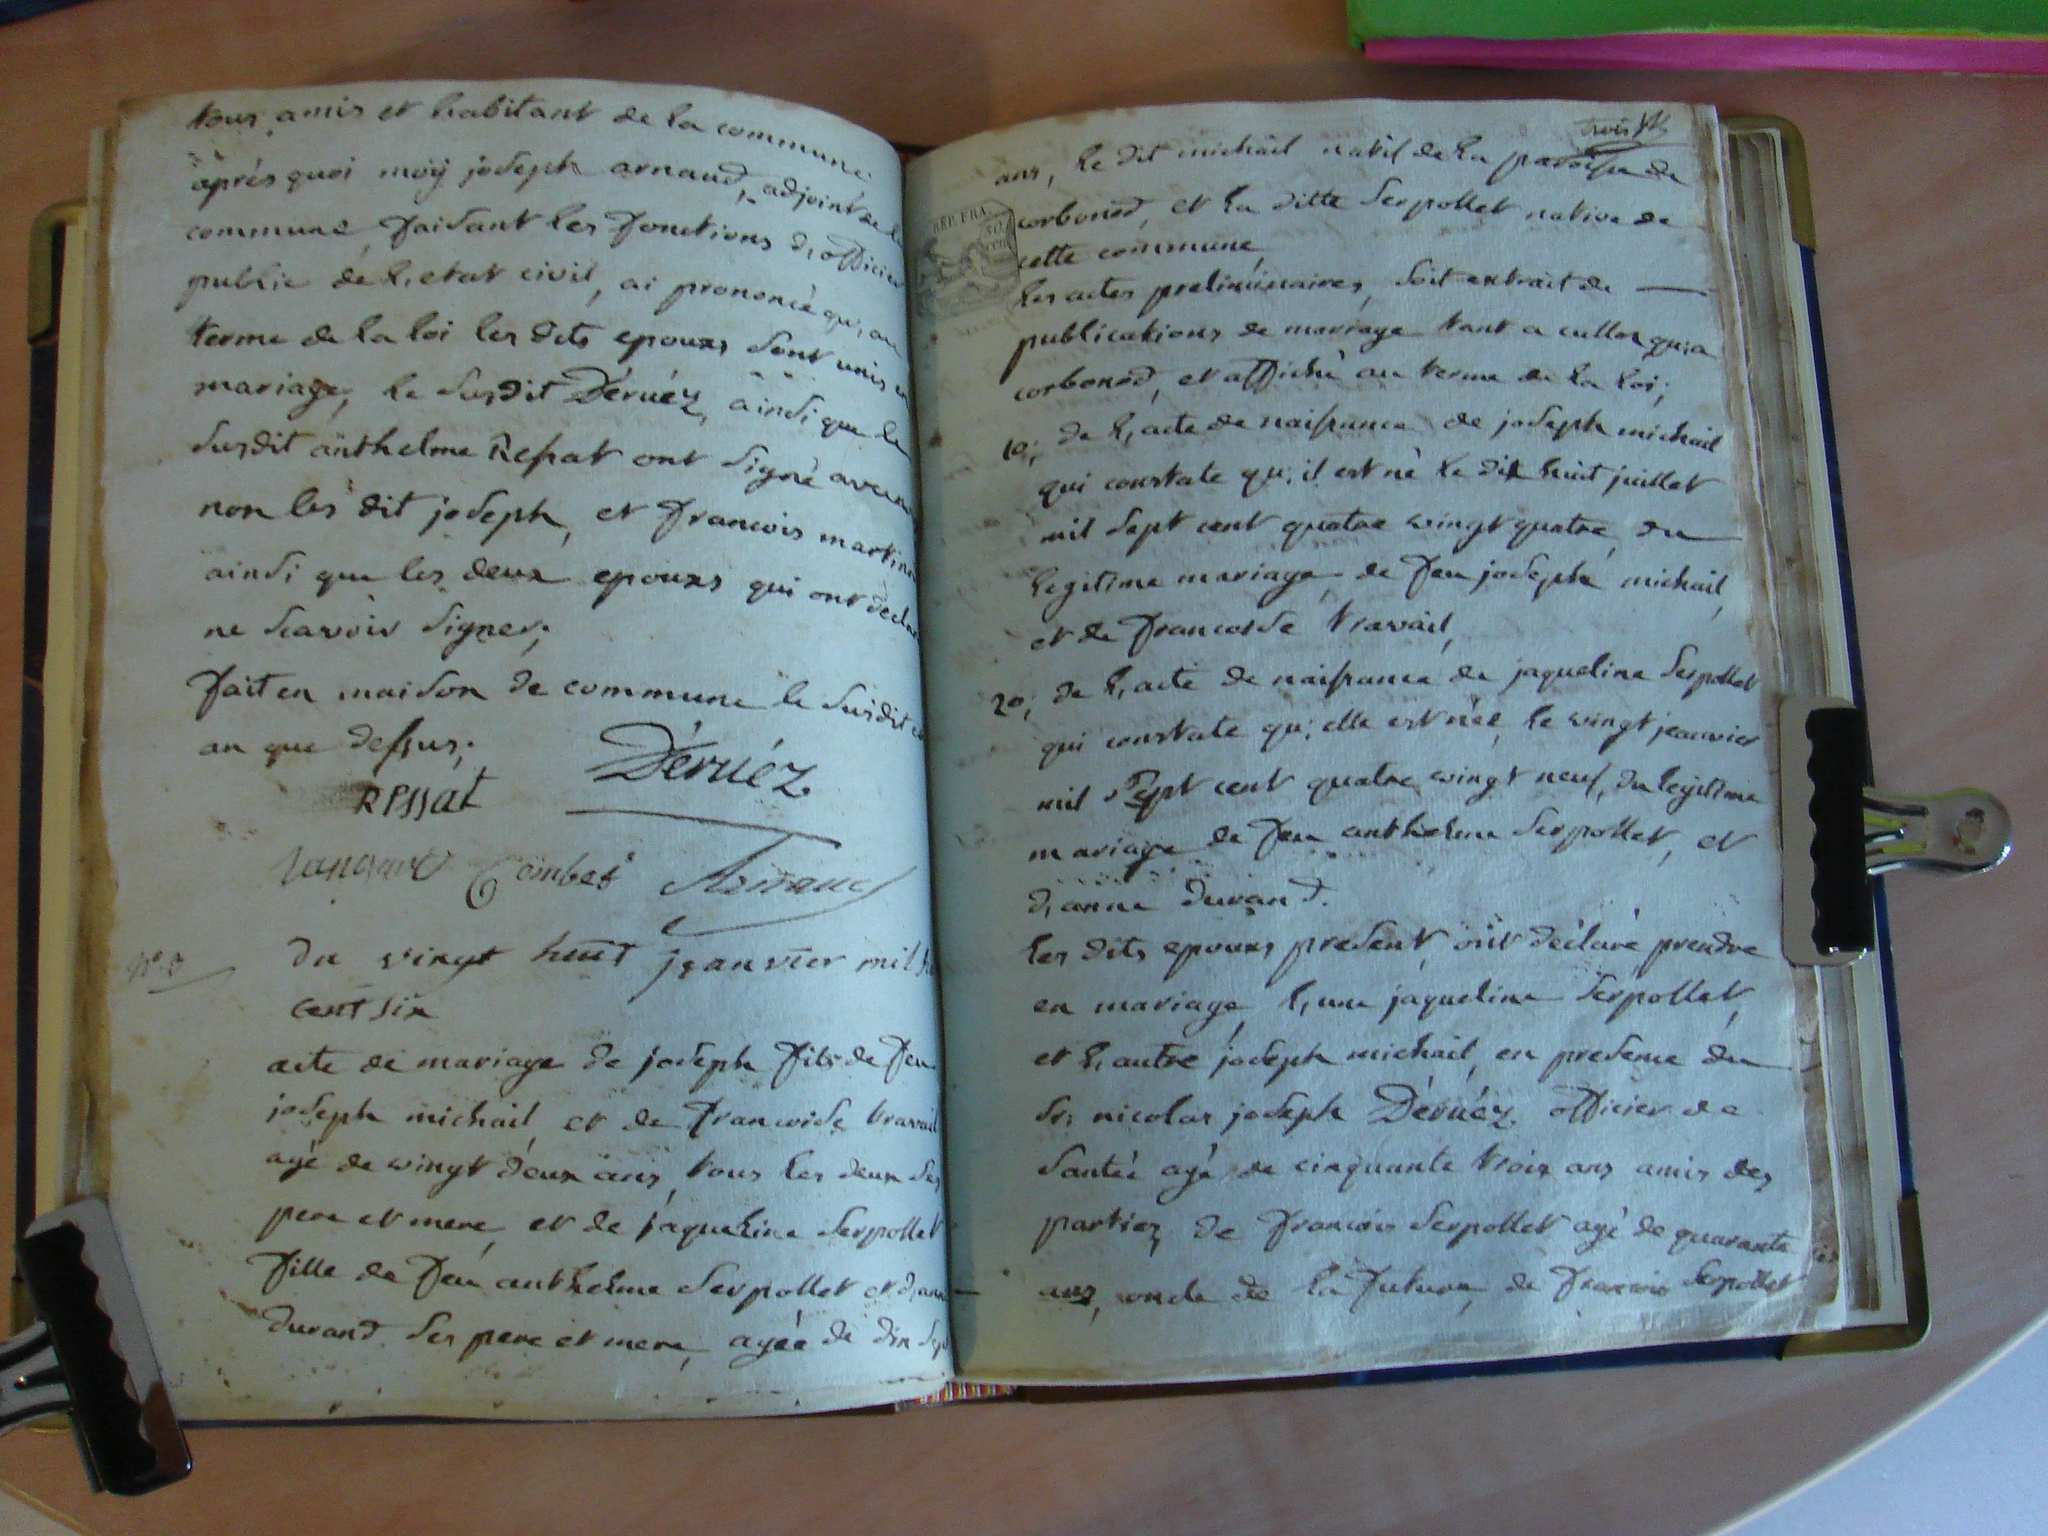 tous amis et habitant de la commune.
aprés quoi moÿ joseph arnaud, adjoint de la
commune, faisant les fonctions d, officier
public de l, etat civil, ai prononcé qu, au
terme de la loi les dits epouxs sont unis en
mariage, le susdit Déruéz, ainsi que le
susdit anthelme Ressat ont signé avec
non les dit joseph, et francois martin
ainsi que les deux epouxs qui ont déclaré
ne scavoir signer;
fait en maison de commune le susdit
an que dessus;
Ressat Déruéz
Combet Arnaud
N° 3
du vingt huit jeanvier mil
cent six
acte de mariage de joseph fils de feu
joseph michail, et de francoise travail
agé de wingt deux ans, tous les deux ses
pere et mere, et de jaqueline Serpollet
fille de feu anthelme Serpollet et d, anne
durand ses pere et mere, agée de dix sept
trois
ans, le dit michail natif de la paroisse de
corbonod, et la ditte Serpollet native de
cette commune,
REP. FRA.
50
cen
les actes preliminaires, soit extrait de —
publications de mariage tant a culloz qu, a
corbonod, et affiché au terme de la loi;
1o; de l, acte de naissance de joseph michail
qui constate qu, il est né le dix huit juillet
mil sept cent quatre wingt quatre, du
legitime mariage, de feu joseph michail,
et de francoise travail,
2o; de l, acte de naissance de jaqueline Serpollet
qui constate qu, elle est née, le wingt jeanvier
mil sept cent quatre wingt neuf, du legitime
mariage de feu anthelme Serpollet, et
d, anne durand.
les dits epouxs present, ont déclaré prendre
en mariage, l, une jaqueline Serpollet,
et l, autre joseph michail, en presence du
sr; nicolas joseph Déruéz officier de
santée agé de cinquante trois ans amis des
partiez, de francois Serpollet agé de quarante
ans, oncle de la future, de francois Serpollet